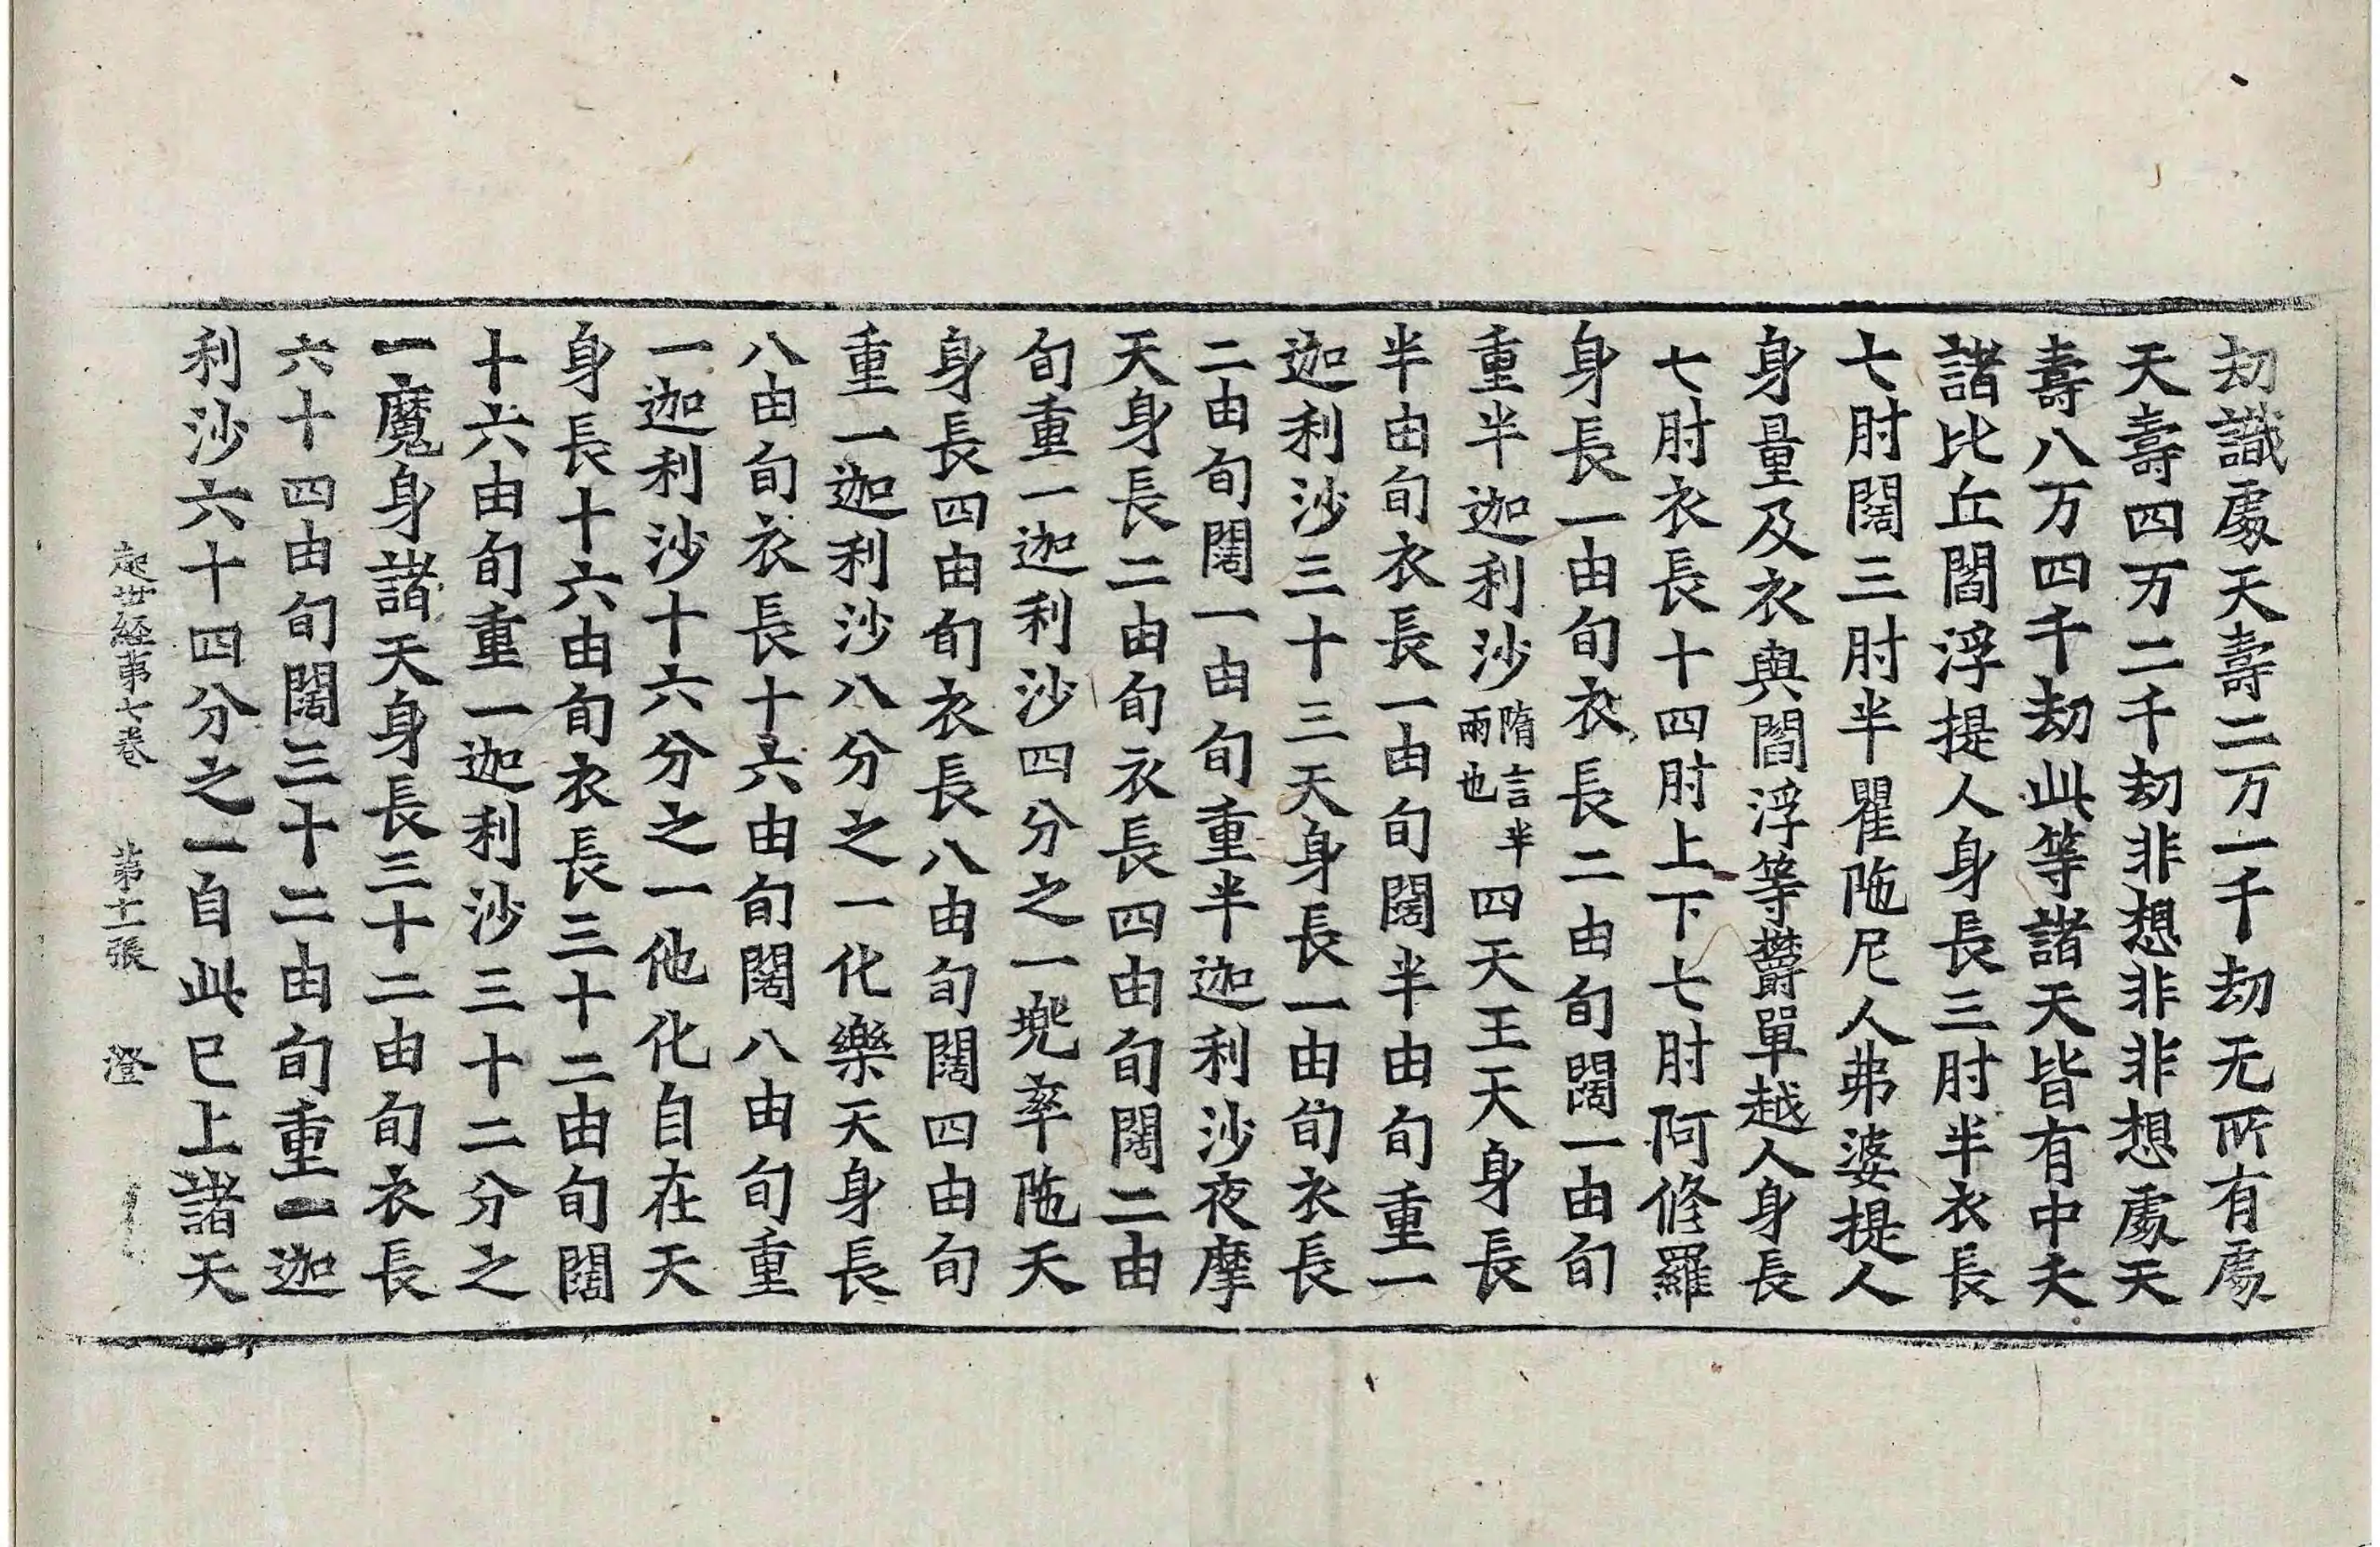 劫識處天壽二万一千劫无所有處
天壽四万二千劫非想非非想處天
壽八万四千劫此等諸天皆有中夭
諸比丘閻浮提人身長三肘半衣長
七肘闊三肘半瞿陁尼人弗婆提人
身量及衣與閻浮等欝單越人身長
七肘衣長十四肘上下七肘阿修羅
身長一由旬衣長二由旬闊一由旬
重半迦利沙隋言半兩也四天王天身長
半由旬衣長一由旬闊半由旬重一
迦利沙三十三天身長一由旬衣長
二由旬闊一由旬重半迦利沙夜摩
天身長二由旬衣長四由旬闊二由
旬重一迦利沙四分之一兜率陁天
身長四由旬衣長八由旬闊四由旬
重一迦利沙八分之一化樂天身長
八由旬衣長十六由旬闊八由旬重
一迦利沙十六分之一他化自在天
身長十六由旬衣長三十二由旬闊
十六由旬重一迦利沙三十二分之
一魔身諸天身長三十二由旬衣長
六十四由旬闊三十二由旬重一迦
利沙六十四分之一自此已上諸天
起世経苐七卷 苐十一張 澄